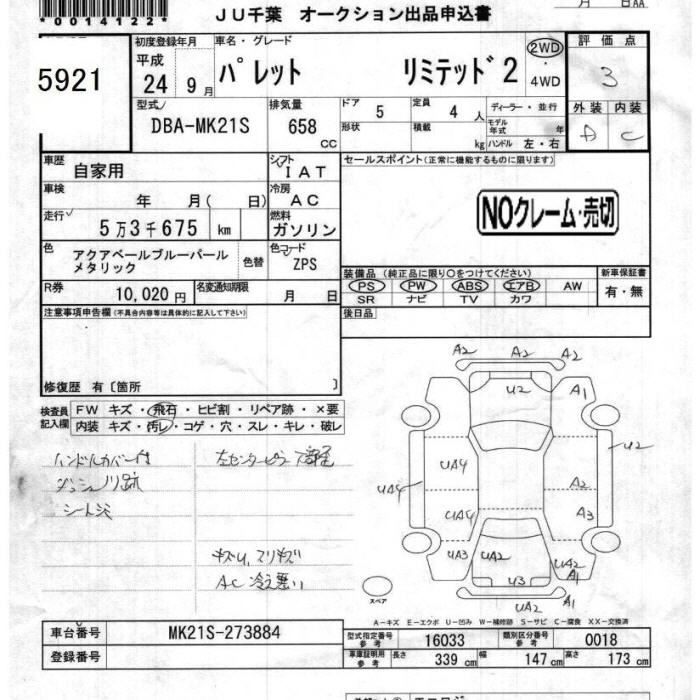 *00141122*
月 日AA
JU千葉 オークション出品申込書
5921
初度登録年月
平成
24 9月
車名・グレード
パレット リミテッド2
2WD
・
4WD
評価点
3
型式
DBA-MK21S
排気量
658
CC
ドア 5
定員 4 人
形状
積載 kg
ディーラー・並行
モデル年式 年
ハンドル 左・右
外装 内装
C
車歴
自家用
シフト
IAT
車検
年 月( 日)
冷房
AC
走行
5万3千675 km
燃料
ガソリン
色
アクアベールブルーパール
メタリック
色替
色コード
ZPS
R券
10,020円
名変通知期限
月 日
セールスポイント(正常に機能するものに限ります)
NOクレーム・売切
装備品(純正品に限り○をつけてください)
PS PW ABS エアB AW
SR ナビ TV カワ
新車保証書
有・無
後日品
注意事項申告欄(不具合内容等は具体的に記入して下さい)
修復歴 有〔箇所 〕
検査員
記入欄
FW キズ・飛石・ヒビ割・リペア跡・×要
内装 キズ・汚レ・コゲ・穴・スレ・キレ・破レ
ハンドルカバー付
ダッシュノリ跡
シート汚
左センターピラー
キズU, スリキズ
AC 冷え悪い
A2 A2 A2
U2
A1
U2
UA4
UA4
A2
UA4
A3
UA3
UA2
UA2
A1
U3
UA2
A1
スペア
A-キズ E-エクボ U-凹み W-補修跡 S-サビ C-腐食 XX-交換済
車台番号
MK21S-273884
登録番号
型式指定番号
参考
16033
類別区分番号
参考
0018
車庫証明用
参考
長さ 339 cm
幅 147 cm
高さ 173 cm